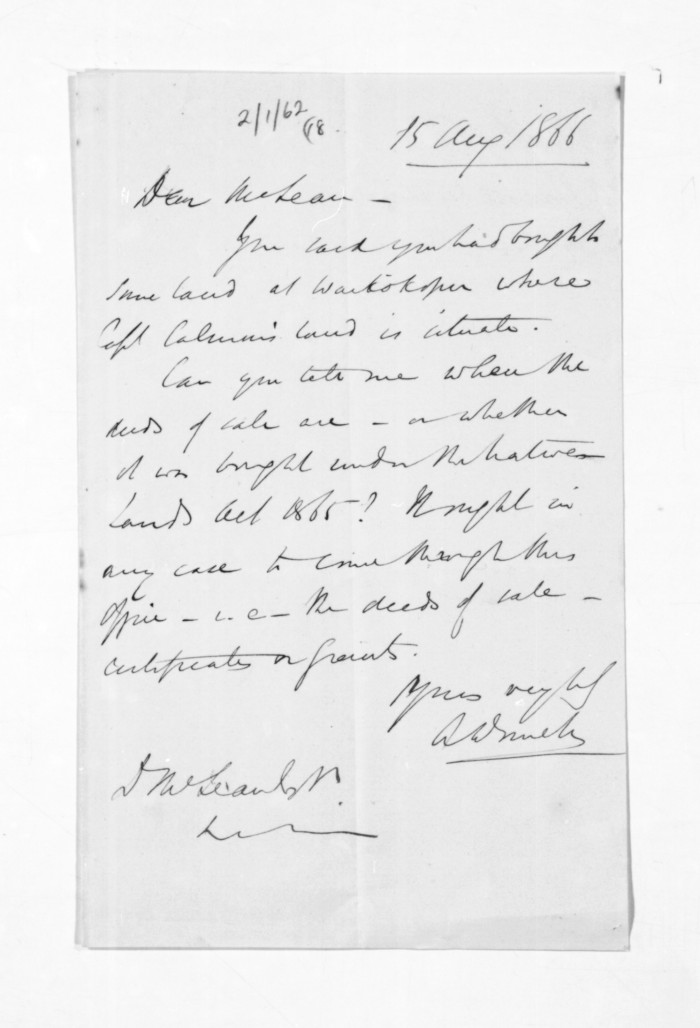 2/1/62
15 Aug 1866
Dear McLean -
You said you had bought
some land at Waikokopu where
Capt is situate.
Can you tell me where the
deeds of sale are - or whether
it was bought under the Native
Lands Act 1865? It ought in
any case to come through this
Office - i.e - the deeds of sale -
certificates or grants.
Yours
D McLean